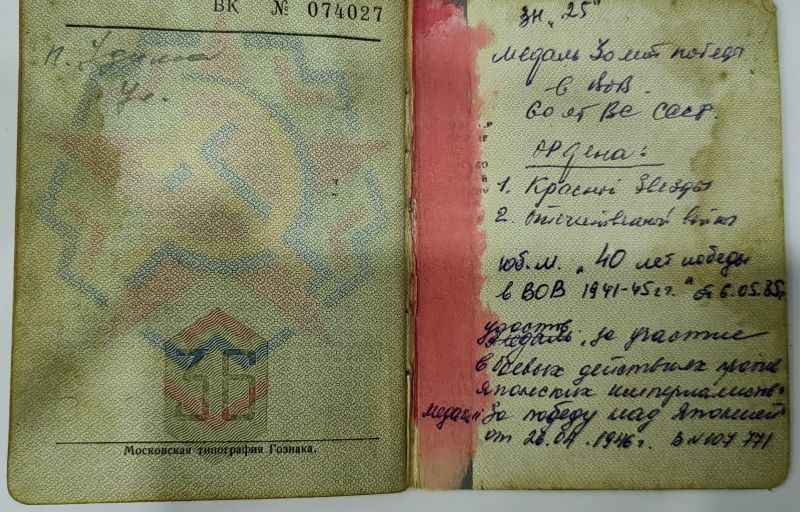 ВК № 074027
Московская типография Гознака.
зн. „25"
медаль 30 лет победы
в ВОВ.
60 лет ВС СССР.
Ордена:
1. Красной Звезды
2. Отечественной войны
юб. м. „40 лет победы
в ВОВ 1941-45 гг." от 6.05.85г
участв.
медаль „за участие
в боевых действиях против
японских империалистов
медаль „За победу над Японией"
от 26.04.1946г. В №107 771